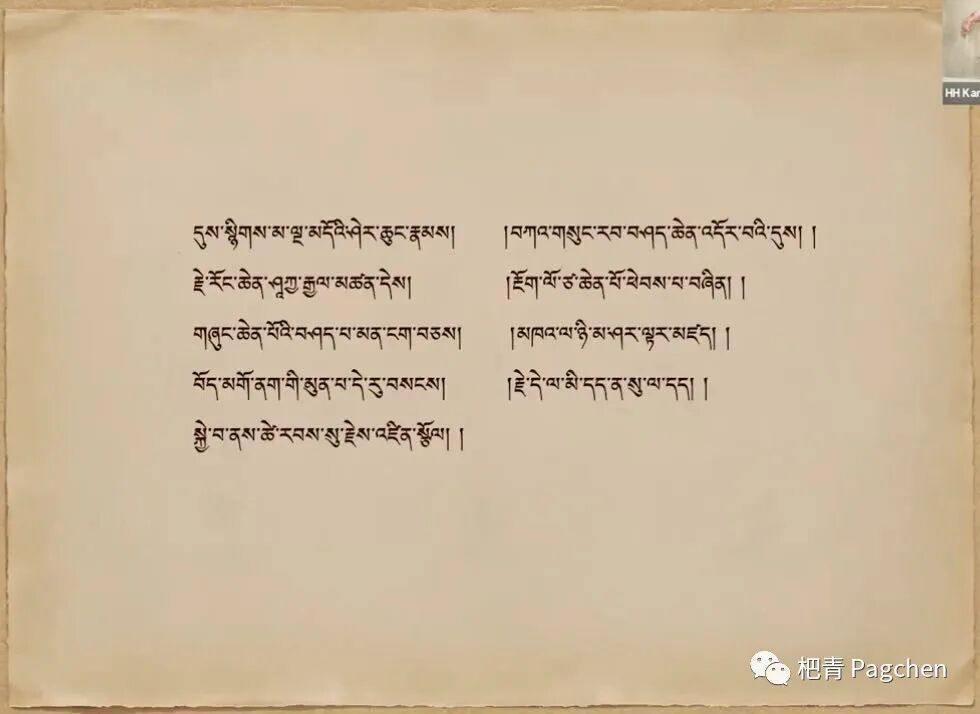 HH Kar
དུས་སྙིགས་མ་ལྔ་མདོའི་ཤེར་ཆུང་རྣམས། །བཀའ་གསུང་རབ་བཤད་ཆེན་འདོར་བའི་དུས། །
རྗེ་རོང་ཆེན་ཤཱཀྱ་རྒྱལ་མཚན་དེས། །རྔོག་ལོ་ཙ་ཆེན་པོ་ཕེབས་པ་བཞིན། །
གཞུང་ཆེན་པོའི་བཤད་པ་མན་ངག་བཅས། །མཁའ་ལ་ཉི་མ་ཤར་ལྟར་མཛད། །
བོད་མགོ་ནག་གི་མུན་པ་དེ་རུ་བསངས། །རྗེ་དེ་ལ་མི་དད་ན་སུ་ལ་དད། །
སྐྱེ་བ་ནས་ཚེ་རབས་སུ་རྗེས་འཛིན་སྩོལ། །
杷青 Pagchen